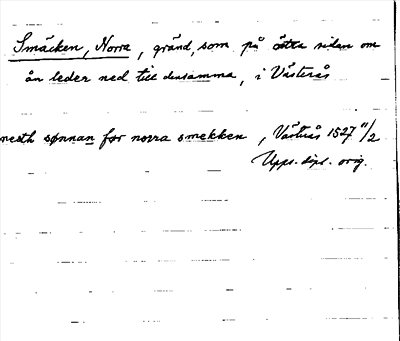 Smäcken, Norra, gränd, som på östra sidan om
ån leder ned till densamma, i Västerås
nesth sønnan for norra smekken, Västerås 1527 11/2
Upps. dipl. orig.